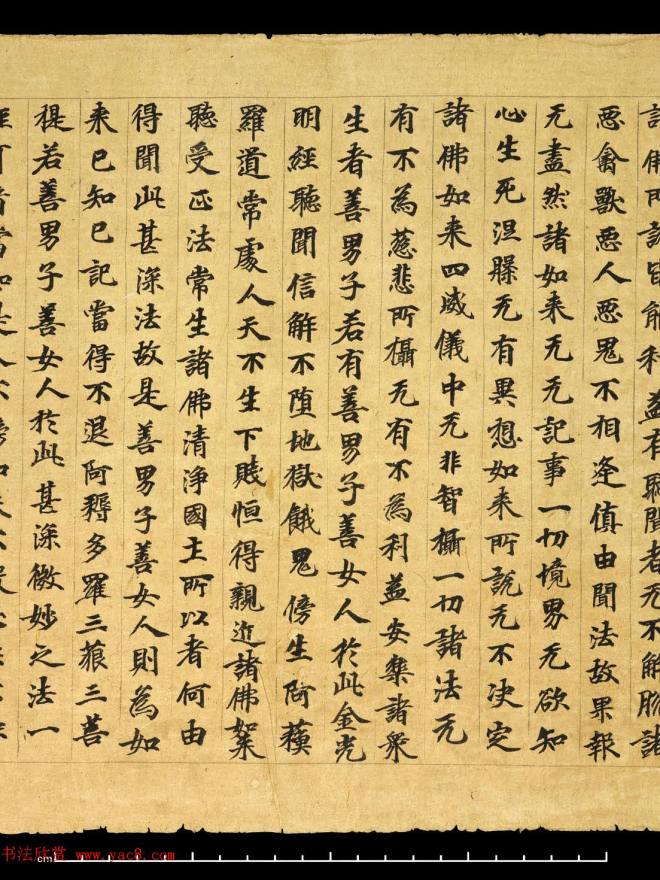 佛所說皆能利益有聽聞者无不解脫諸
惡禽獸惡人惡鬼不相逢值由聞法故果報
无盡然諸如来无无記事一切境界无欲知
心生死涅槃无有異想如来所說无不決定
諸佛如来四威儀中无非智攝一切諸法无
有不為慈悲所攝无有不為利益安樂諸衆
生者善男子若有善男子善女人於此金光
明經聽聞信解不堕地獄餓鬼傍生阿蘇
羅道常處人天不生下賤恒得親近諸佛如来
聽受正法常生諸佛清淨國土所以者何由
得聞此甚深法故是善男子善女人則為如
来已知已記當得不退阿耨多羅三藐三菩
提若善男子善女人於此甚深微妙之法一
者當知是人不謗如来不
书法欣赏 www.yac8.com
cm